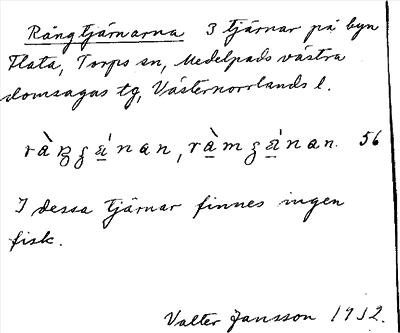 Rångtjärnarna 3 tjärnar på byn
Flata, Torps sn, Medelpads västra
domsagas tg, Västernorrlands l.
56
I dessa tjärnar finnes ingen
fisk.
Valter Jansson 1932.